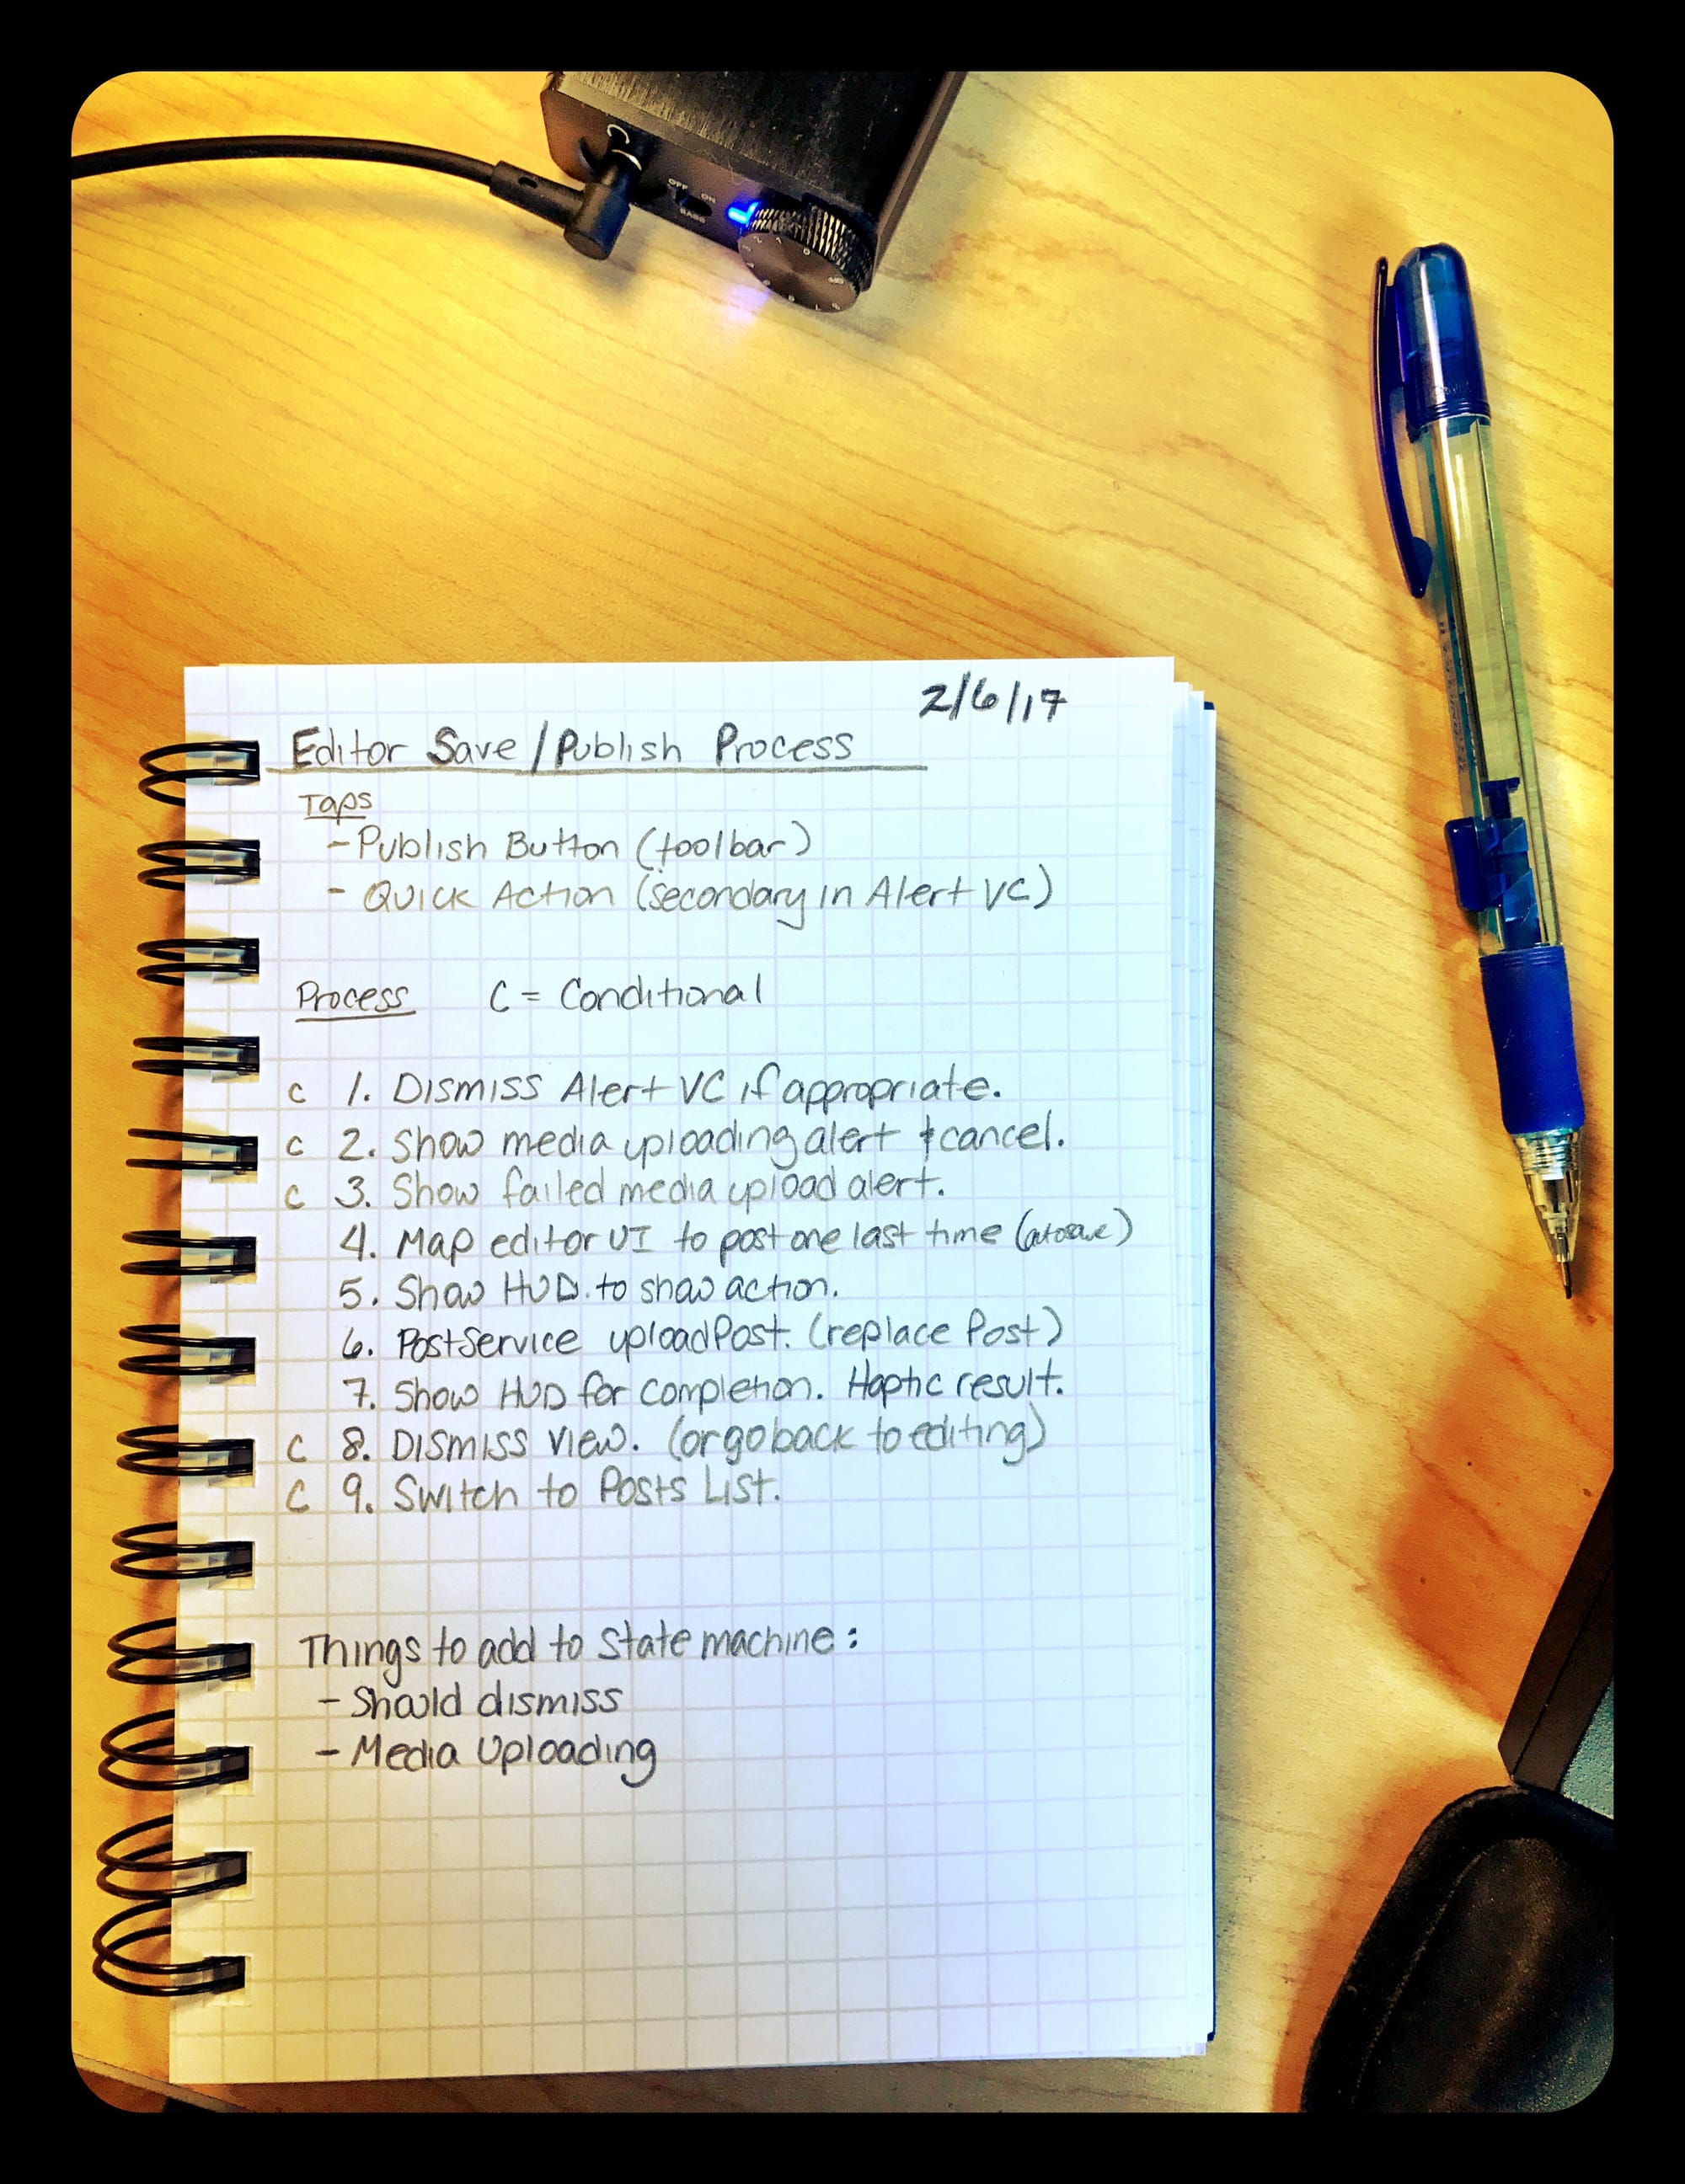 OFF ON
BASS
2/6/17
Editor Save/Publish Process
Taps
- Publish Button (toolbar)
- Quick Action (secondary in Alert VC)
Process C = Conditional
C 1. Dismiss Alert VC if appropriate.
C 2. Show media uploading alert & cancel.
C 3. Show failed media upload alert.
4. Map editor UI to post one last time (autosave)
5. Show HUD. to show action.
6. PostService uploadPost. (replace Post)
7. Show HUD for completion. Haptic result.
C 8. Dismiss view. (or go back to editing)
C 9. Switch to Posts List.
Things to add to State machine:
- Should dismiss
- Media Uploading